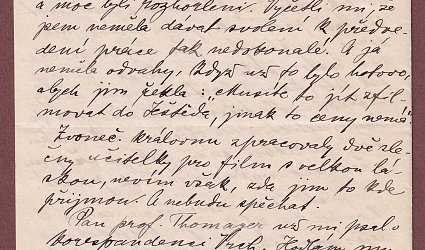 a moc byli rozhořčeni. Vyčetli mi, že
jsem neměla dávat svolení k předve-
dení práce tak nedokonalé. A já
neměla odvahy, když už to bylo hotovo,
abych jim řekla: „Musíte to jít zfil-
movat do Ještěda, jinak to ceny nemá"
Zvoneč. královnu zpracovaly dvě sle-
čny učitelky pro film s velkou lá-
skou, nevím však, zda jim to kde
přijmou. A nebudu spěchat.
Pan prof. Thomayer už mi psal
korespondenci